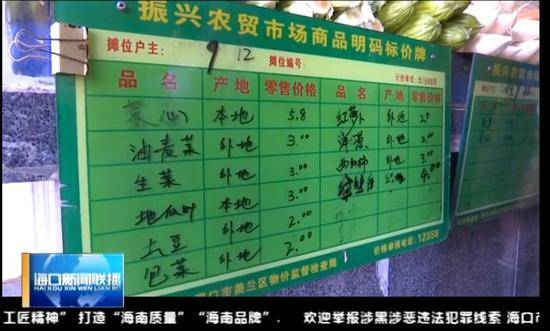 振兴农贸市场商品明码标价牌
摊位户主: 9 12 摊位编号:
计价单位:元/500克
品名 产地 零售价格 品名 产地 零售价格
菜心 本地 5.8 红萝卜 外地 2.0
油麦菜 外地 3.00 洋葱 外地 2.00
生菜 外地 3.00 西红柿 外地 3.00
地瓜叶 本地 3.00 4.00
土豆 外地 2.00
包菜 外地 2.00
价格举报电话:12358
海口市美兰区物价监督检查局
振兴农贸市场商
摊位户主:
品名 产地
海口新闻联播
HAI KOU XIN WEN LIAN BO
工匠精神” 打造“海南质量”“海南品牌”. 欢迎举报涉黑涉恶违法犯罪线索 海口市